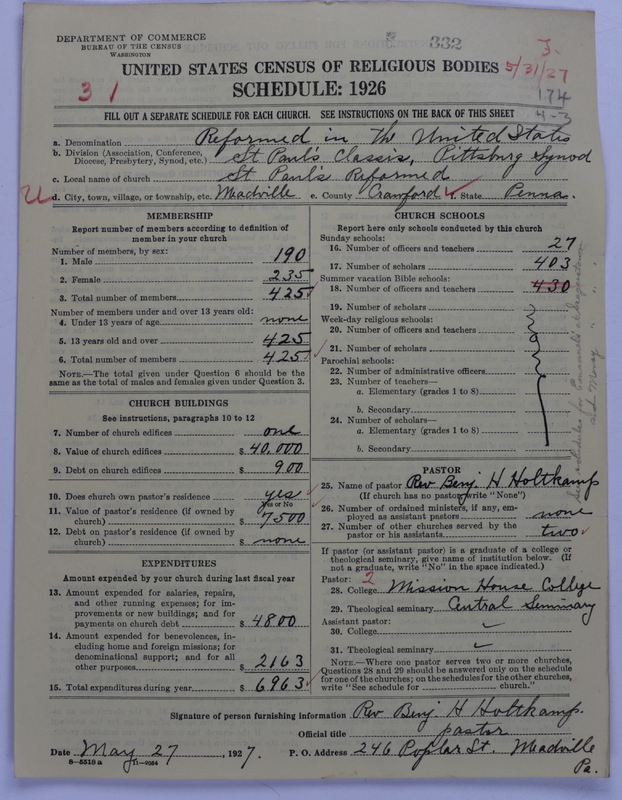 DEPARTMENT OF COMMERCE
BUREAU OF THE CENSUS
WASHINGTON
332
3.
5/31/27
174
4-3
UNITED STATES CENSUS OF RELIGIOUS BODIES
SCHEDULE: 1926
3 1
FILL OUT A SEPARATE SCHEDULE FOR EACH CHURCH. SEE INSTRUCTIONS ON THE BACK OF THIS SHEET
a. Denomination Reformed in The United States
b. Division (Association, Conference, Diocese, Presbytery, Synod, etc.) St Paul's Classis, Pittsburg Synod
c. Local name of church St Paul's Reformed
d. City, town, village, or township, etc. Meadville e. County Crawford f. State Penna.
MEMBERSHIP
Report number of members according to definition of
member in your church
Number of members, by sex:
1. Male 190
2. Female 235
3. Total number of members 425
Number of members under and over 13 years old:
4. Under 13 years of age none
5. 13 years old and over 425
6. Total number of members 425
NOTE.—The total given under Question 6 should be
same as the total of males and females given under Question 3.
CHURCH BUILDINGS
See instructions, paragraphs 10 to 12
7. Number of church edifices one
8. Value of church edifices $ 40,000
9. Debt on church edifices $ 900
10. Does church own pastor's residence yes
Yes or No
11. Value of pastor's residence (if owned by
church) $ 7500
12. Debt on pastor's residence (if owned by
church) $ none
EXPENDITURES
Amount expended by your church during last fiscal year
13. Amount expended for salaries, repairs,
and other running expenses; for im-
provements or new buildings; and for
payments on church debt $ 4800
14. Amount expended for benevolences, in-
cluding home and foreign missions; for
denominational support; and for all
other purposes $ 2163
15. Total expenditures during year $ 6963
CHURCH SCHOOLS
Report here only schools conducted by this church
Sunday schools:
16. Number of officers and teachers 27
17. Number of scholars 403
Summer vacation Bible schools:
18. Number of officers and teachers 430
19. Number of scholars
Week-day religious schools:
20. Number of officers and teachers
21. Number of scholars
Parochial schools:
22. Number of administrative officers
23. Number of teachers—
a. Elementary (grades 1 to 8)
b. Secondary
24. Number of scholars—
a. Elementary (grades 1 to 8)
b. Secondary
PASTOR
25. Name of pastor Rev Benj. H Holtkamp
(If church has no pastor, write "None")
26. Number of ordained ministers, if any, em-
ployed as assistant pastors none
27. Number of other churches served by the
pastor or his assistants two
If pastor (or assistant pastor) is a graduate of a college or
theological seminary, give name of institution below. (If
not a graduate, write "No" in the space indicated.)
Pastor: 2
28. College Mission House College
29. Theological seminary Central Seminary
Assistant pastor:
30. College
31. Theological seminary
NOTE.—Where one pastor serves two or more churches,
Questions 28 and 29 should be answered only on the schedule
for one of the churches; on the schedules for the other churches,
write "See schedule for church."
Signature of person furnishing information Rev Benj. H Holtkamp.
Official title pastor
Date May 27, 1927. P. O. Address 246 Poplar St. Meadville
Pa.
8—5518 a 11—9564